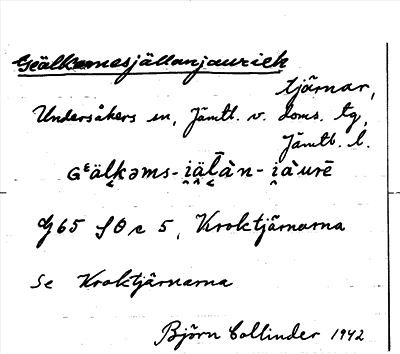 Geälkemesjällanjaurieh
tjärnar,
Undersåkers sn, Jämtl. v. doms. tg,
Jämtl. l.
Gᴱäl̯kəms-i̯äl̯̄àn-i̯àurē
G65 SÖ c 5, Kroktjärnarna
Se Kroktjärnarna
Björn Collinder 1942